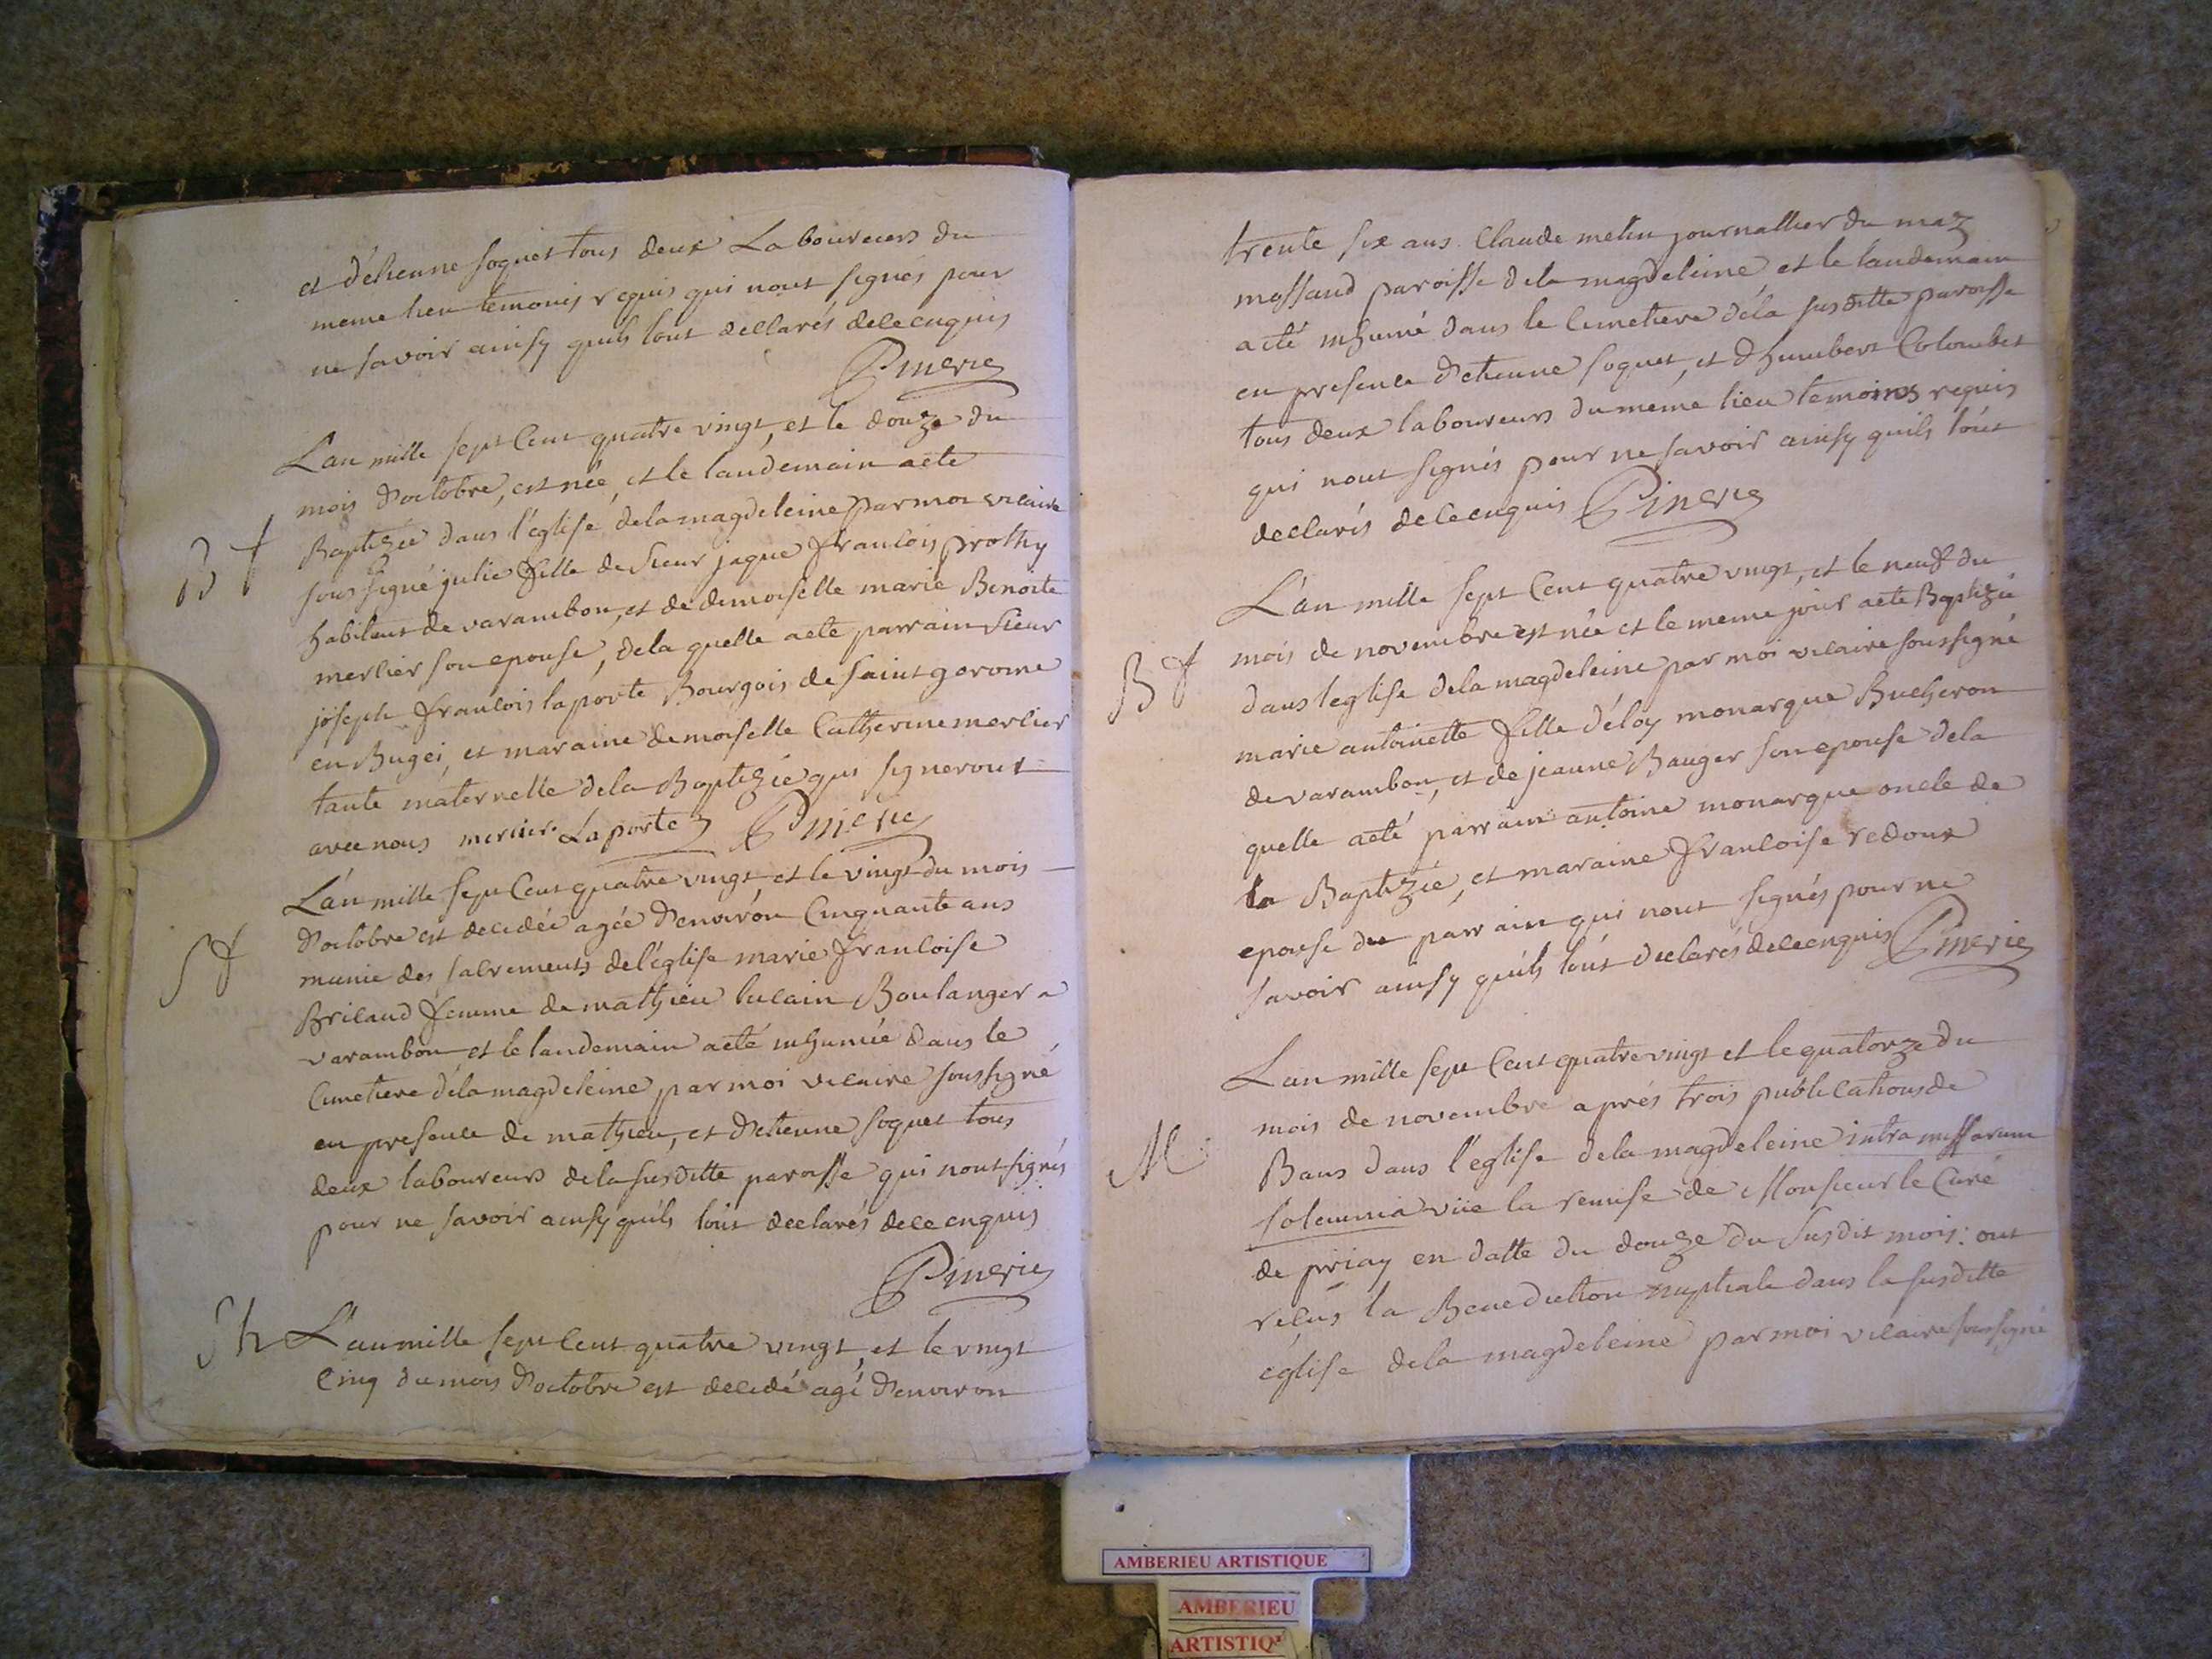 et d'étienne soquet tous deux Laboureurs du
meme lieu temoins requis qui nont signés pour
ne savoir ainsy quils lont dellarés de ce enquis
Pinerie
L'an mille sept Cent quatre vingt, et le douze du
mois d'octobre, est née, et le landemain aete
B f
Baptizée dans l'église dela magdeleine par moi vicaire
sous signé julie fille de sieur jaque françois prothy
habitant de varambon, et de demoiselle marie Benoite
merlier son epouse, dela quelle aete parrain sieur
joseph françois laporte Bourgois de saint gerome
en Bugei, et maraine demoiselle Catherine merlier
tante maternelle dela Baptizée qui signeront
avec nous merlier Laporte Pinerie
L'an mille sept Cent quatre vingt, et le vingt du mois
d'octobre est decedée agée d'environ Cinquante ans
S f
munie des sacrements de l'église marie françoise
Brilaud femme de mathieu lucain Boulanger a
varambon et le landemain aeté inhumée dans le
Cimetiere déla magdeleine par moi vicaire soussigné
en presence de mathieu, et d'etienne soquet tous
deux laboureurs dela susditte paroisse qui nont signés
pour ne savoir ainsy quils lont declarés de ce enquis
Pinerie
S h
L'an mille sept Cent quatre vingt, et le vingt
Cinq du mois d'octobre est decedé agé d'environ
trente six ans Claude metin journallier du maz
massaud paroisse dela magdeleine, et le landemain
aeté inhumé dans le Cimetiere déla susditte paroisse
en presence d'etienne soquet, et d'humbert Colombet
tous deux laboureurs du meme lieu temoins requis
qui nont signés pour ne savoir ainsy quils lont
declarés de ce enquis Pinerie
L'an mille sept Cent quatre vingt, et le neuf du
mois de novembre est née et le meme jour aete Baptizée
B f
dans leglise dela magdeleine par moi vicaire soussigné
marie antoinette fille d'éloy monarque Bucheron
de varambon, et de jeanne Bauger son epouse dela
quelle aeté parrain antoine monarque oncle de
la Baptizée, et maraine françoise redoux
epouse du parrain qui nont signés pour ne
savoir ainsy quils lont declarés de ce enquis Pinerie
L'an mille sept Cent quatre vingt et le quatorze du
mois de novembre aprés trois publications de
M
Bans dans l'eglise dela magdeleine intra missarum
solemnia vüe la remise de Monsieur le Curé
de priay en datte du douze du susdit mois: ont
reçus la Benediction nuptiale dans la susditte
église dela magdeleine par moi vicaire soussigné
AMBERIEU ARTISTIQUE
AMBERIEU
ARTISTIQ